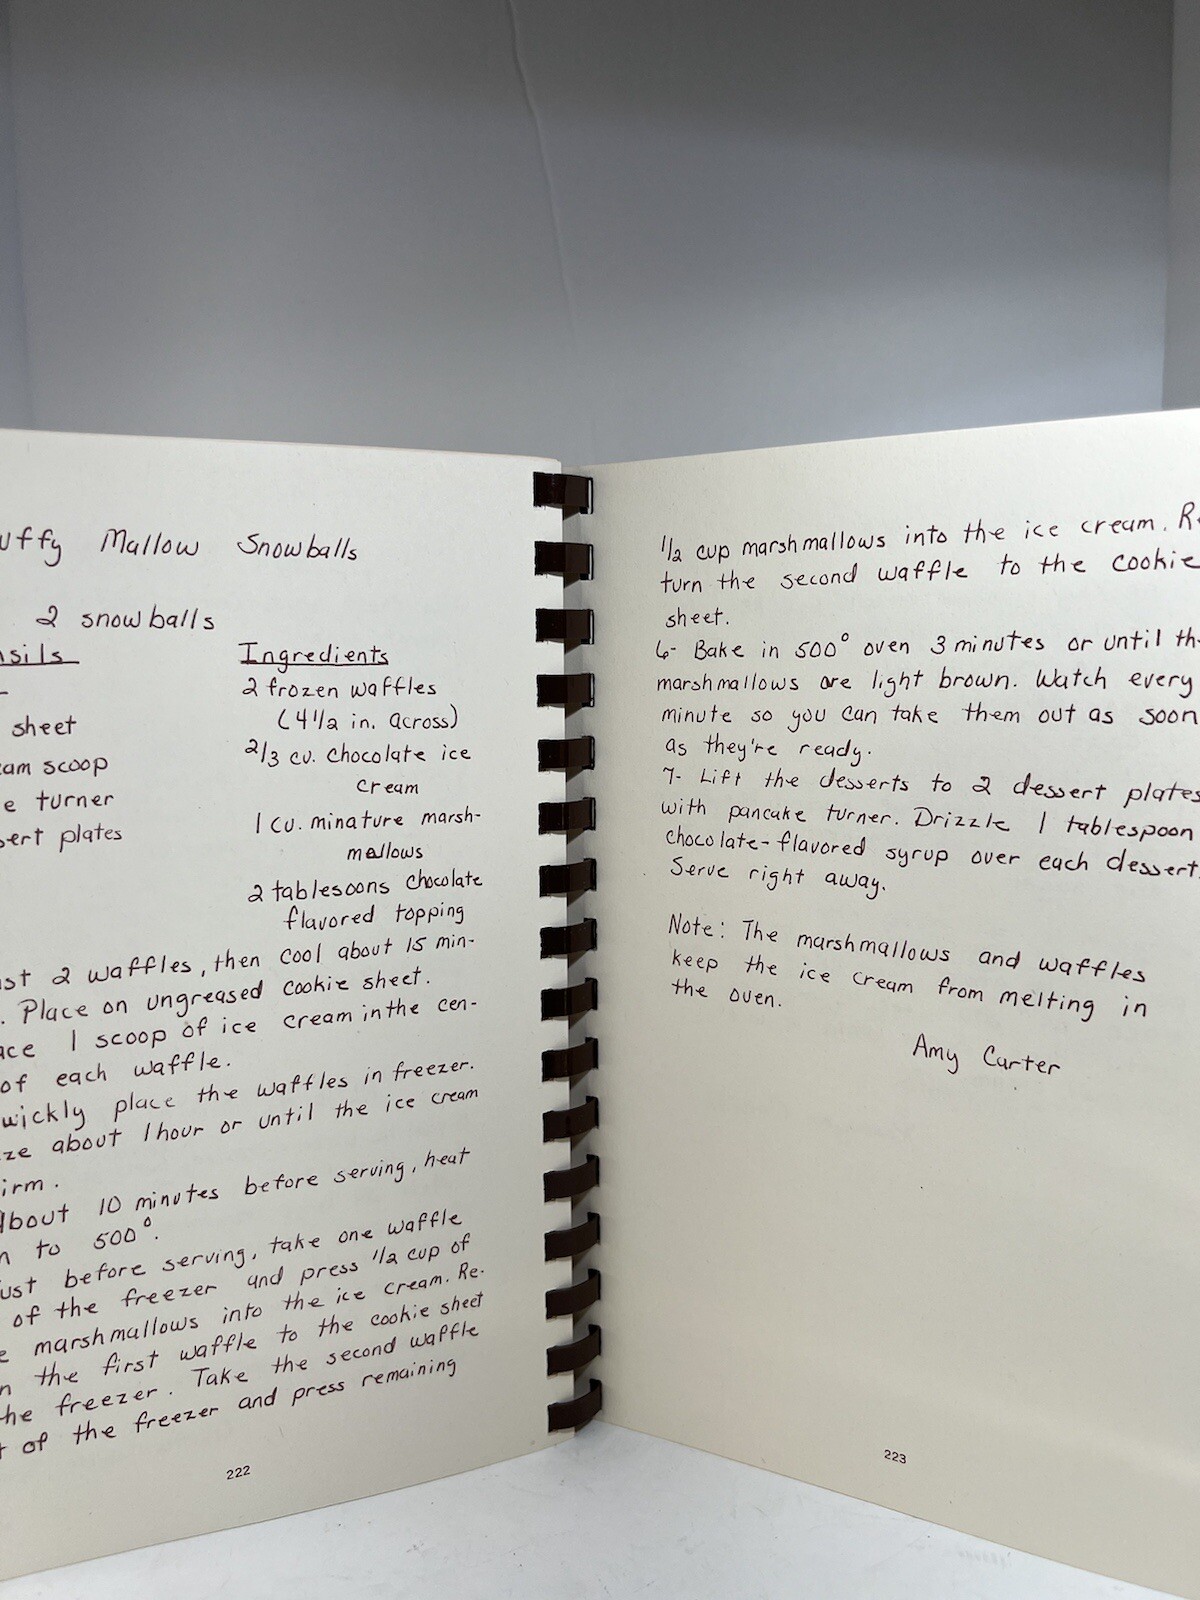 uffy Mallow Snowballs
2 snowballs
nsils
sheet
am scoop
e turner
sert plates
Ingredients
2 frozen waffles
(4 1/2 in. across)
2/3 cu. chocolate ice
cream
1 cu. minature marsh-
mallows
2 tablesoons chocolate
flavored topping
ast 2 waffles, then cool about 15 min-
. Place on ungreased cookie sheet.
ace 1 scoop of ice cream in the cen-
of each waffle.
wickly place the waffles in freezer.
ze about 1 hour or until the ice cream
irm.
About 10 minutes before serving, heat
n to 500°.
ust before serving, take one waffle
of the freezer and press 1/2 cup of
e marshmallows into the ice cream. Re-
n the first waffle to the cookie sheet
he freezer. Take the second waffle
t of the freezer and press remaining
222
1/2 cup marshmallows into the ice cream. Re
turn the second waffle to the cookie
sheet.
6- Bake in 500° oven 3 minutes or until th
marshmallows are light brown. Watch every
minute so you can take them out as soon
as they're ready.
7- Lift the desserts to 2 dessert plates
with pancake turner. Drizzle 1 tablespoon
chocolate-flavored syrup over each dessert.
Serve right away.
Note: The marshmallows and waffles
keep the ice cream from melting in
the oven.
Amy Carter
223